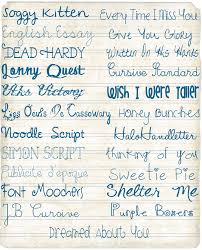 Soggy Kitten Every Time I Miss You
English Essay Give You Glory
DEAD HARDY Written In His Hands
Jonny Quest Cursive Standard
Uhs Victory Wish I Were Taller
Liss Deals To Cassowary Honey Bunches
Noodle Script HaloHandletter
SIMON SCRIPT thinking of you
Publicite d'epoque Sweetie Pie
Font Moochers Shelter Me
J.B. Cursive Purple Boxers
Dreamed About You